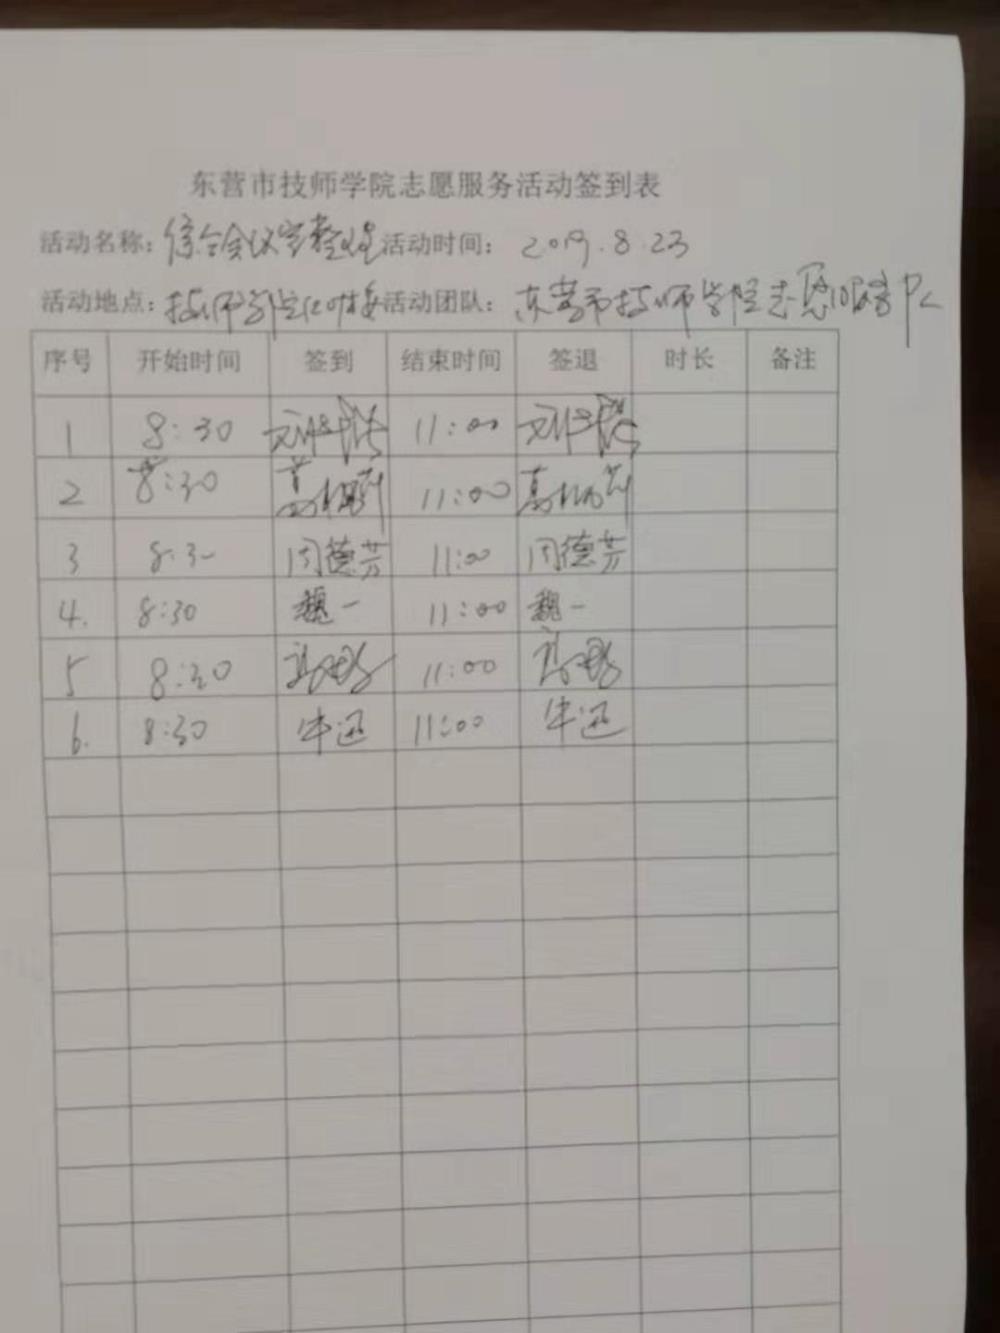 东营市技师学院志愿服务活动签到表
活动名称：综合会议室整理 活动时间：2019.8.23
活动地点：技师学院 活动团队：东营市技师学院志愿服务队
序号 开始时间 签到 结束时间 签退 时长 备注
1 8:30 11:00
2 8:30 11:00
3 8:30 周德芳 11:00 周德芳
4. 8:30 魏一 11:00 魏一
5 8:30 11:00
6. 8:30 牛迅 11:00 牛迅